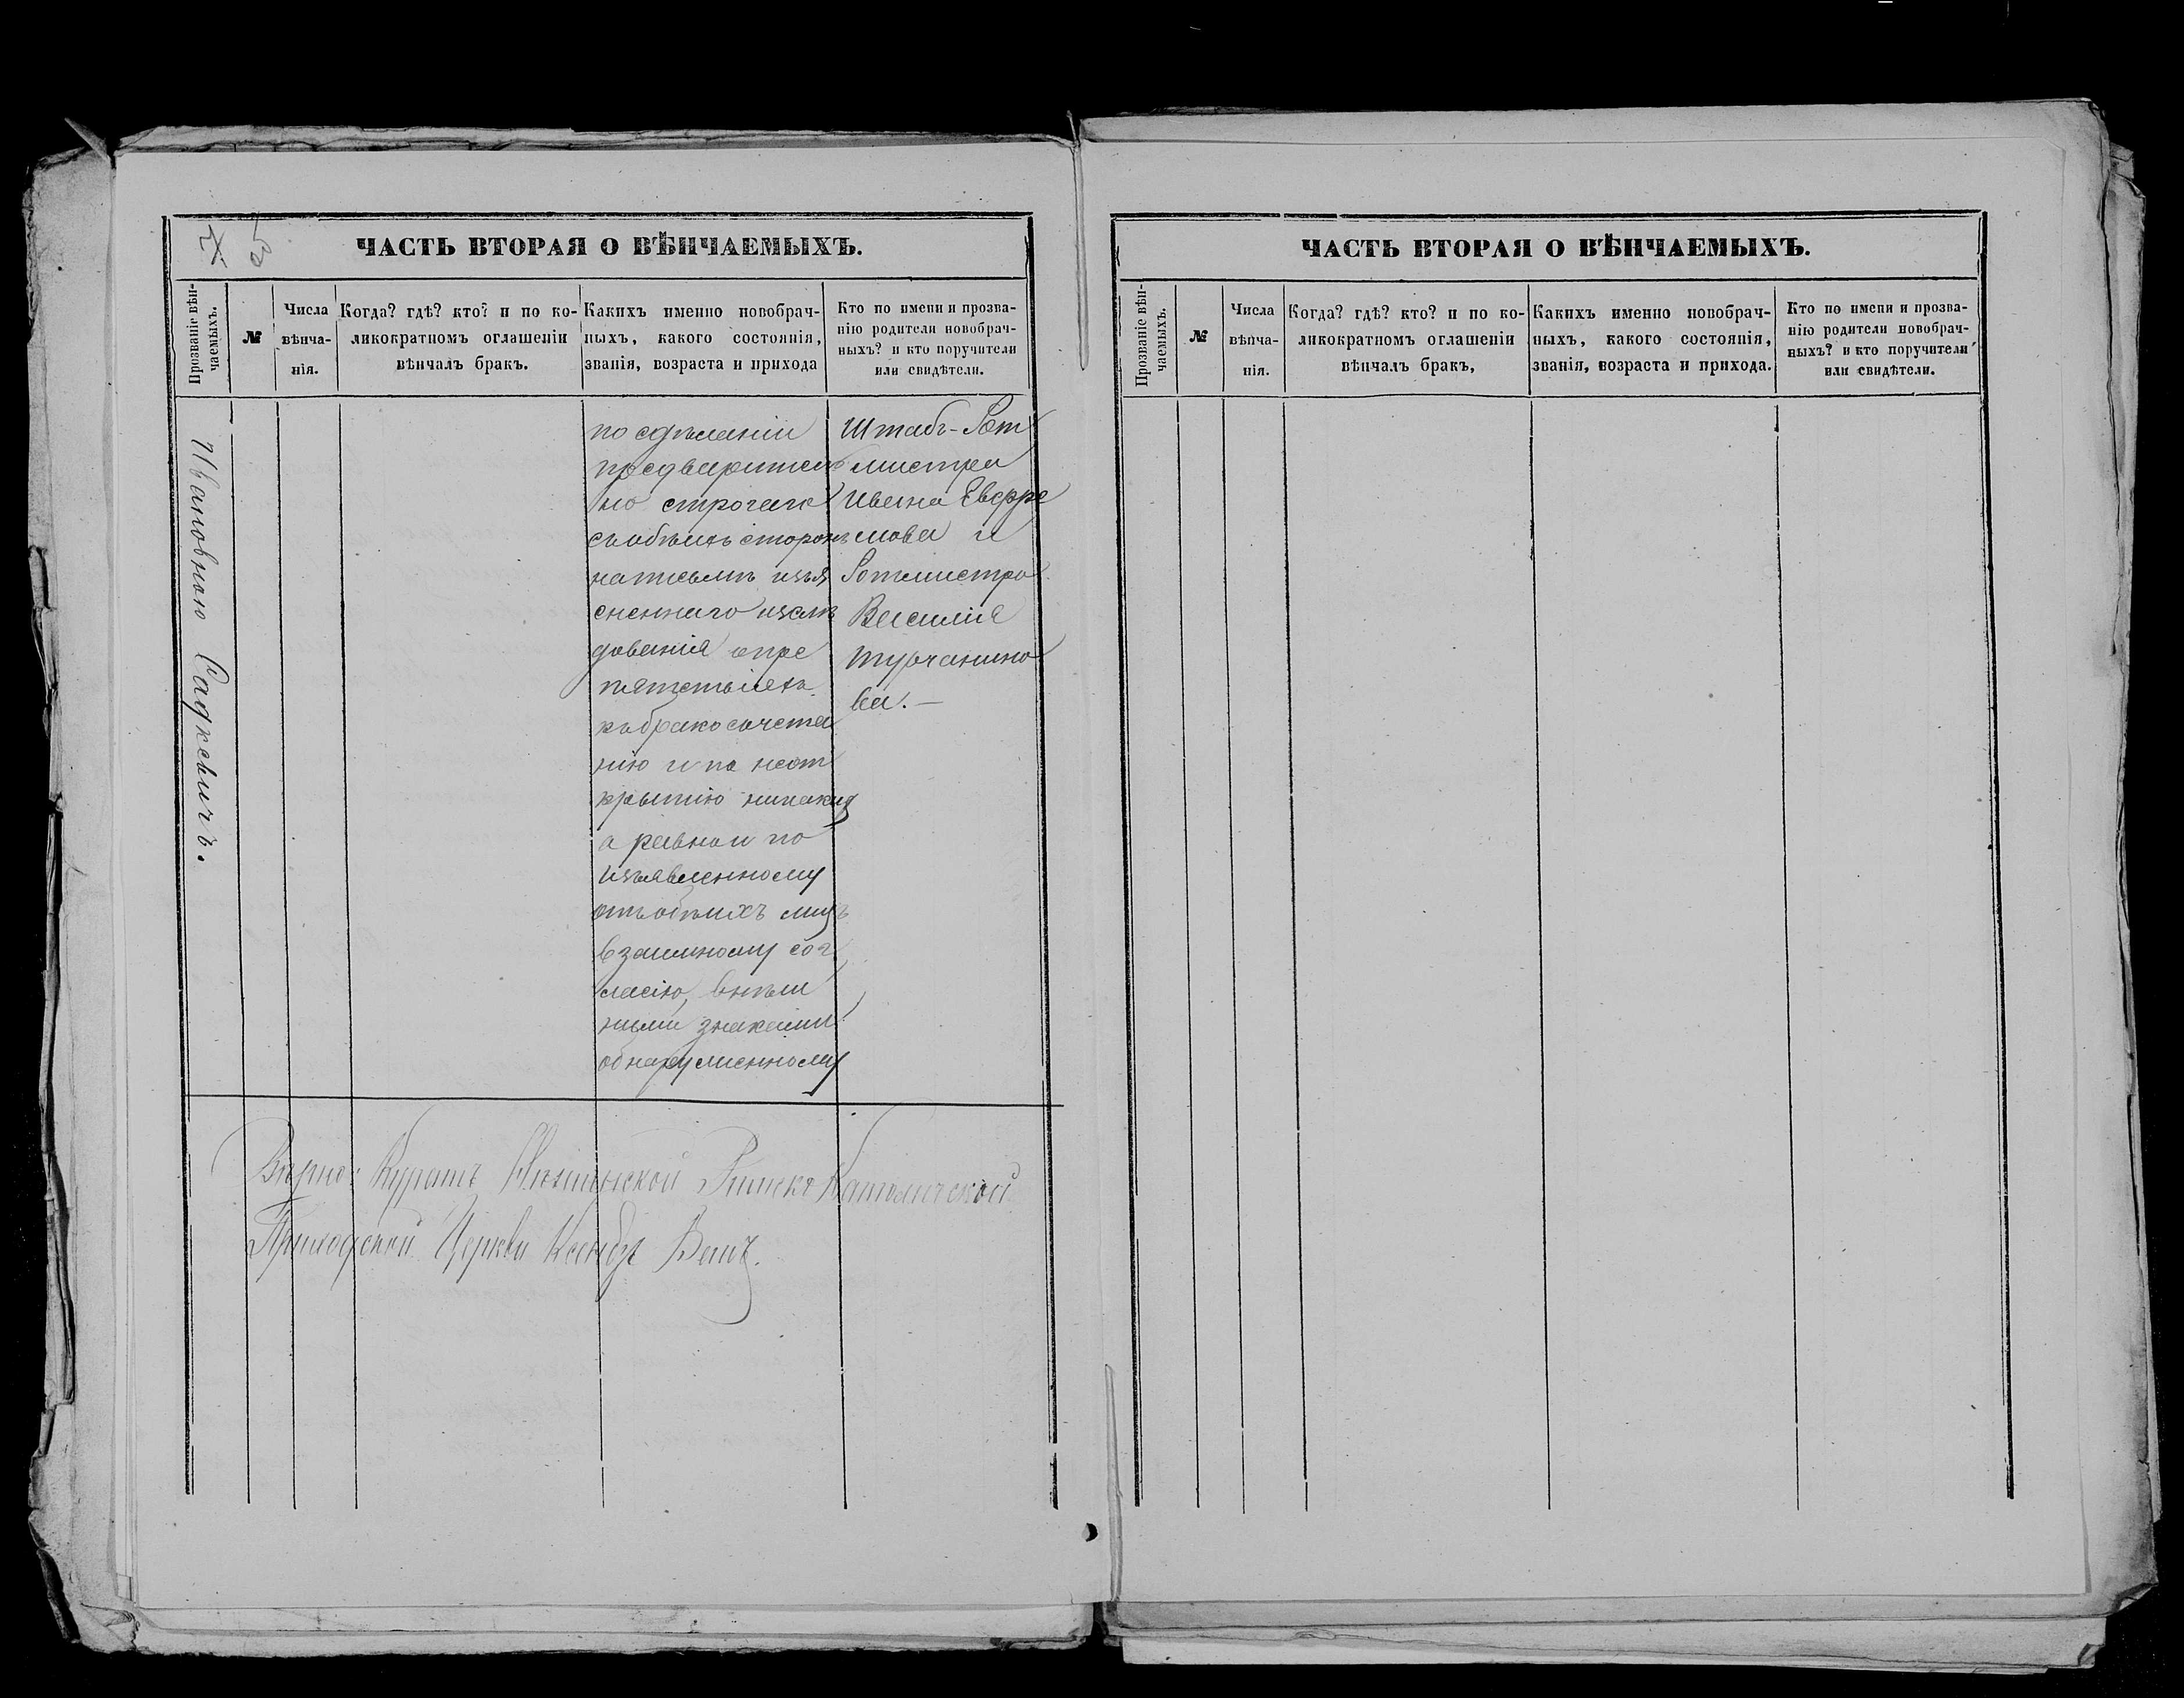 7
25
ЧАСТЬ ВТОРАЯ О ВѢНЧАЕМЫХЪ.
Прозваніе вѣн-
чаемыхъ.
№
Числа
вѣнча-
нія.
Когда? гдѣ? кто? и по ко-
ликократномъ оглашеніи
вѣнчалъ бракъ.
Какихъ именно новобрач-
ныхъ, какого состоянія,
званія, возраста и прихода
Кто по имени и прозва-
нію родители новобрач-
ныхъ? и кто поручители
или свидѣтели.
Ивановною Садкевичъ.
по сдѣланіи
предварител
но строгаго
съ обѣихъ сторонъ
на письмѣ изъя
сненнаго изслѣ
дованія о пре
пятствіяхъ
къ бракосочета
нію и по неот
крытію никаких
а равно и по
изъявленному
отъ обѣихъ лицъ
взаимному сог
ласію, внѣш
ними знаками
обнаруженному
Штабъ-Рот
мистра
Ивана Евфре
мова и
Ротмистра
Василія
Турчанино
ва.—
Вѣрно: Куратъ Римско Католической
Приходской Церкви Ксендзъ
ЧАСТЬ ВТОРАЯ О ВѢНЧАЕМЫХЪ.
Прозваніе вѣн-
чаемыхъ.
№
Числа
вѣнча-
нія.
Когда? гдѣ? кто? и по ко-
ликократномъ оглашеніи
вѣнчалъ бракъ,
Какихъ именно новобрач-
ныхъ, какого состоянія,
званія, возраста и прихода.
Кто по имени и прозва-
нію родители новобрач-
ныхъ? и кто поручители
или свидѣтели.